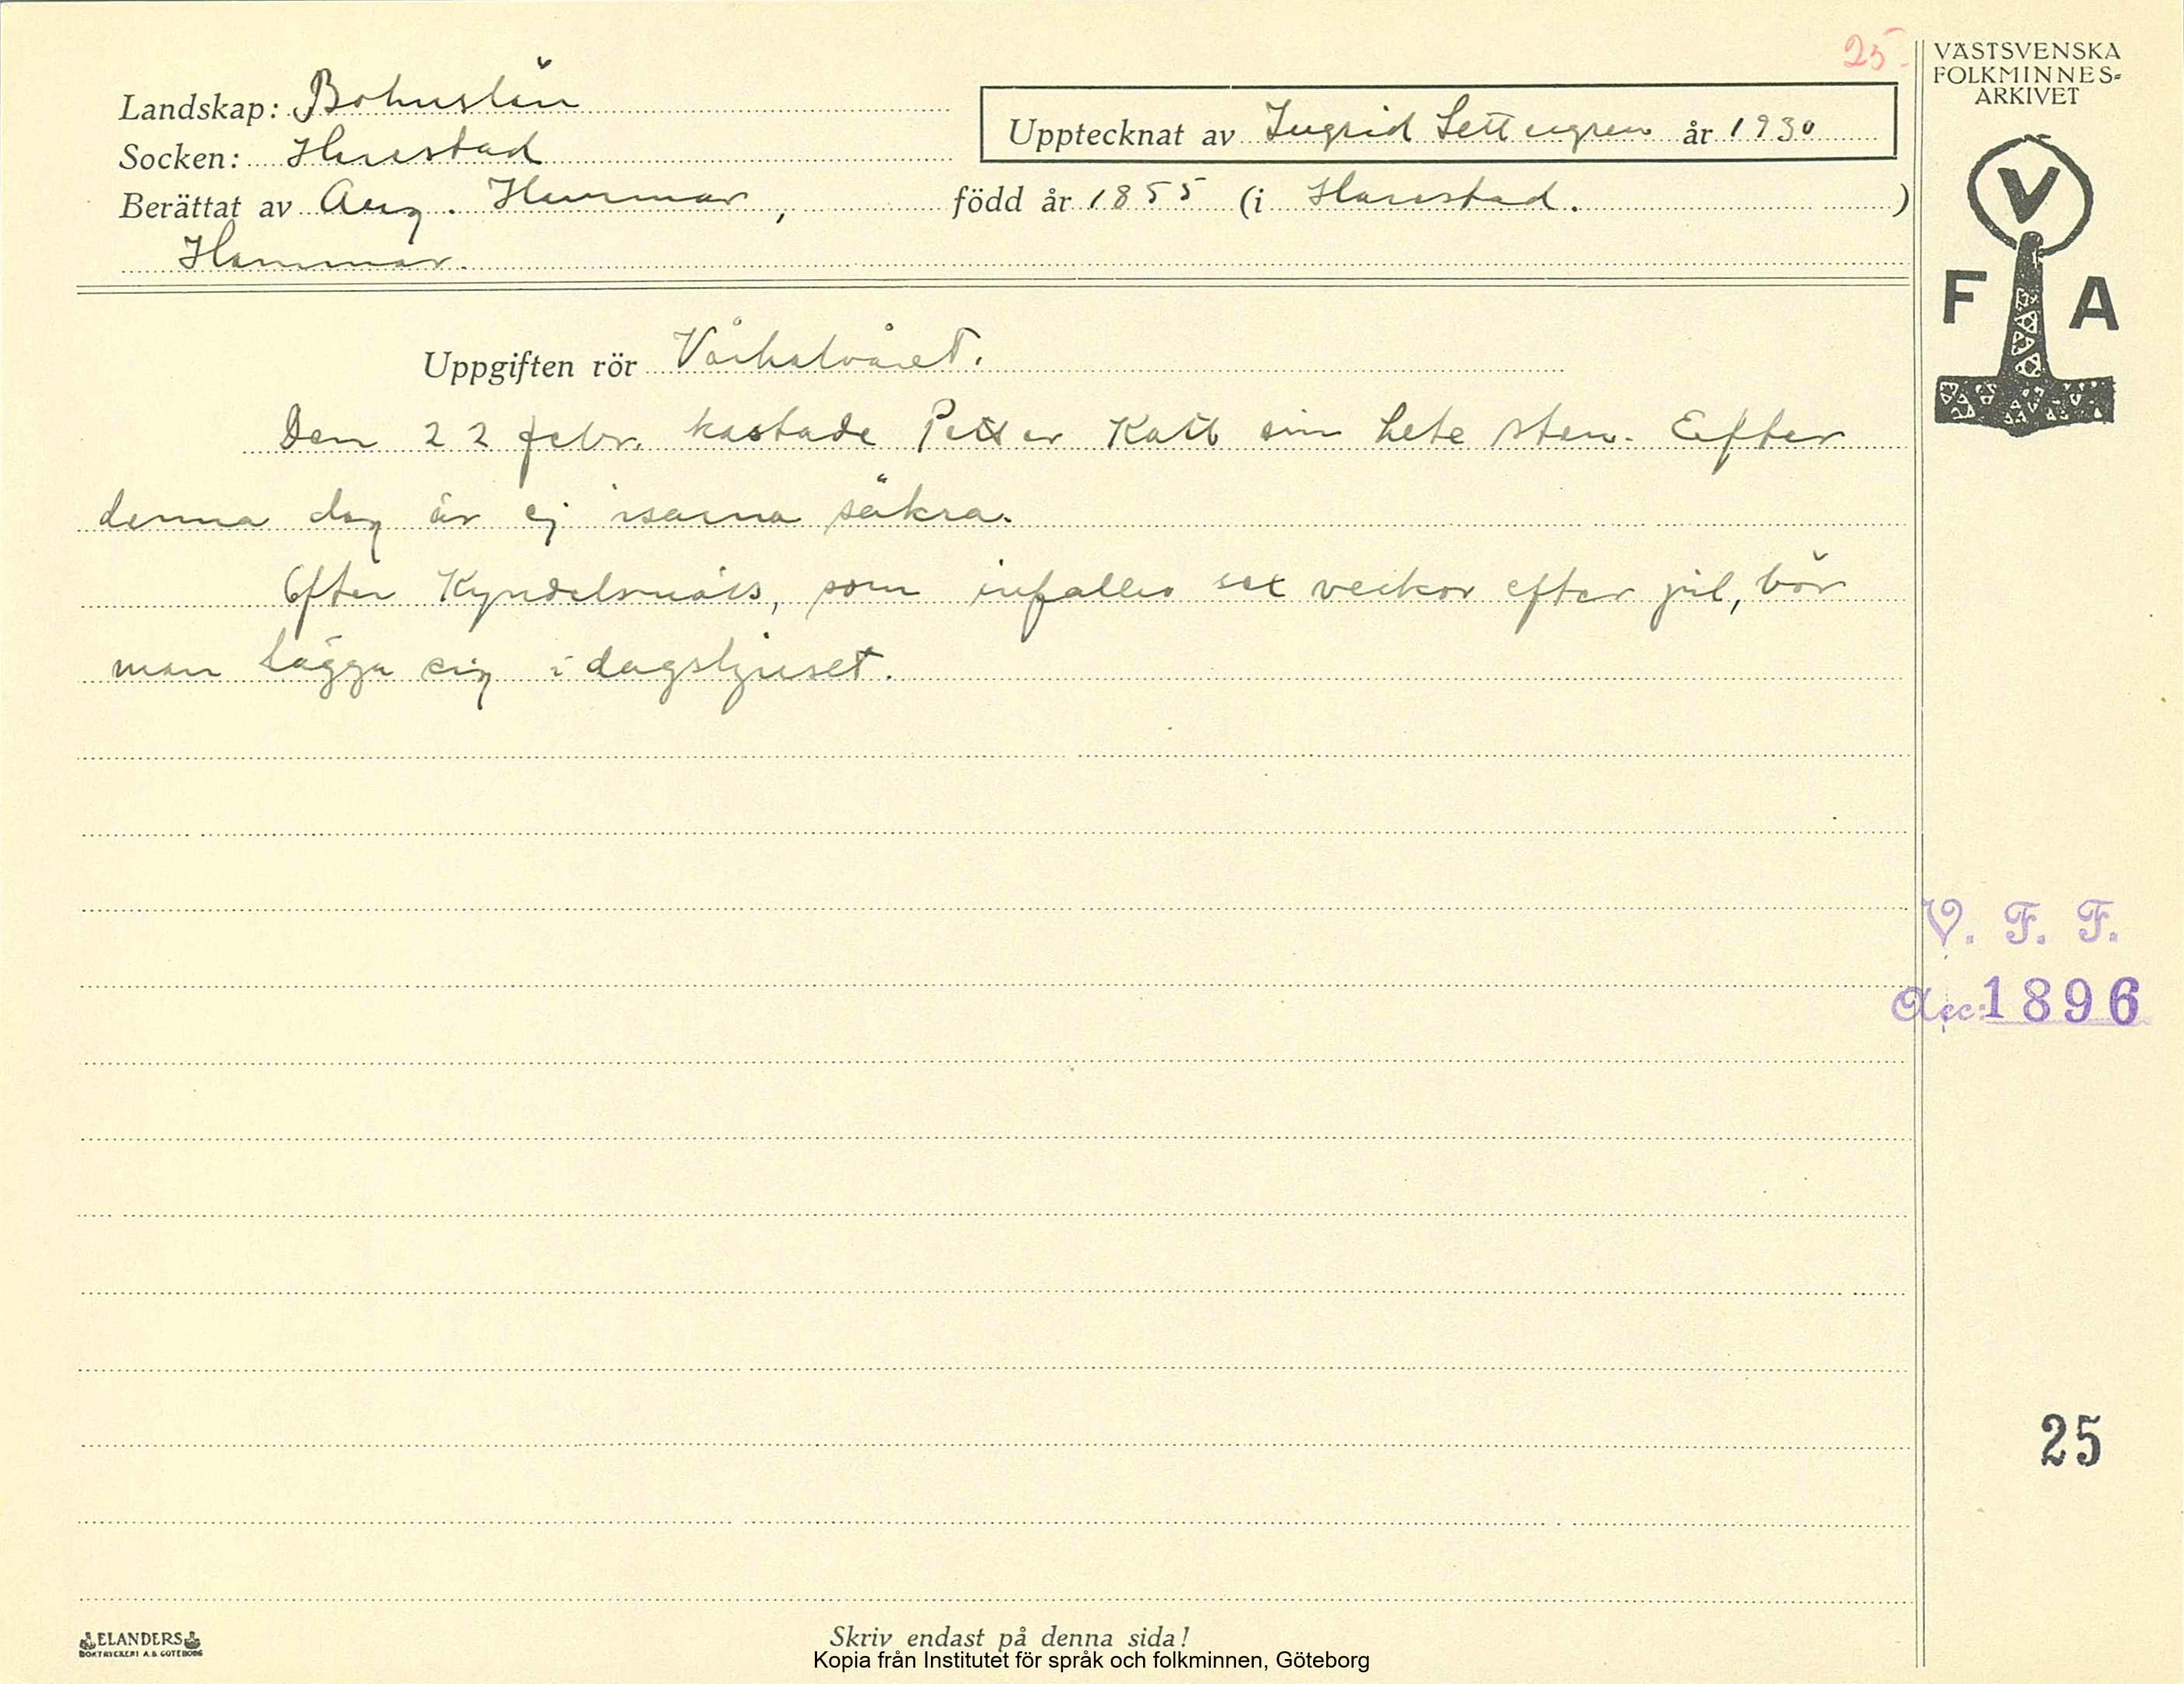 25.
VÄSTSVENSKA
FOLKMINNES-
ARKIVET
Landskap: Bohuslän
Upptecknat av Ingrid Settergren år 1930
Socken: Harestad
Berättat av Aug. Hammar, född år 1855 (i Harestad. )
Hammar.
V
F A
Uppgiften rör Vårhalvåret.
Den 22 febr. kastade Petter Katt sin hete sten. Efter
denna dag är ej isarna säkra.
Efter Kyndelsmäss, som infaller sex veckor efter jul, bör
man lägga sig i dagsljuset.
V. F. F.
Acc: 1896
25
ELANDERS
BOKTRYCKERI A.B. GÖTEBORG
Skriv endast på denna sida!
Kopia från Institutet för språk och folkminnen, Göteborg